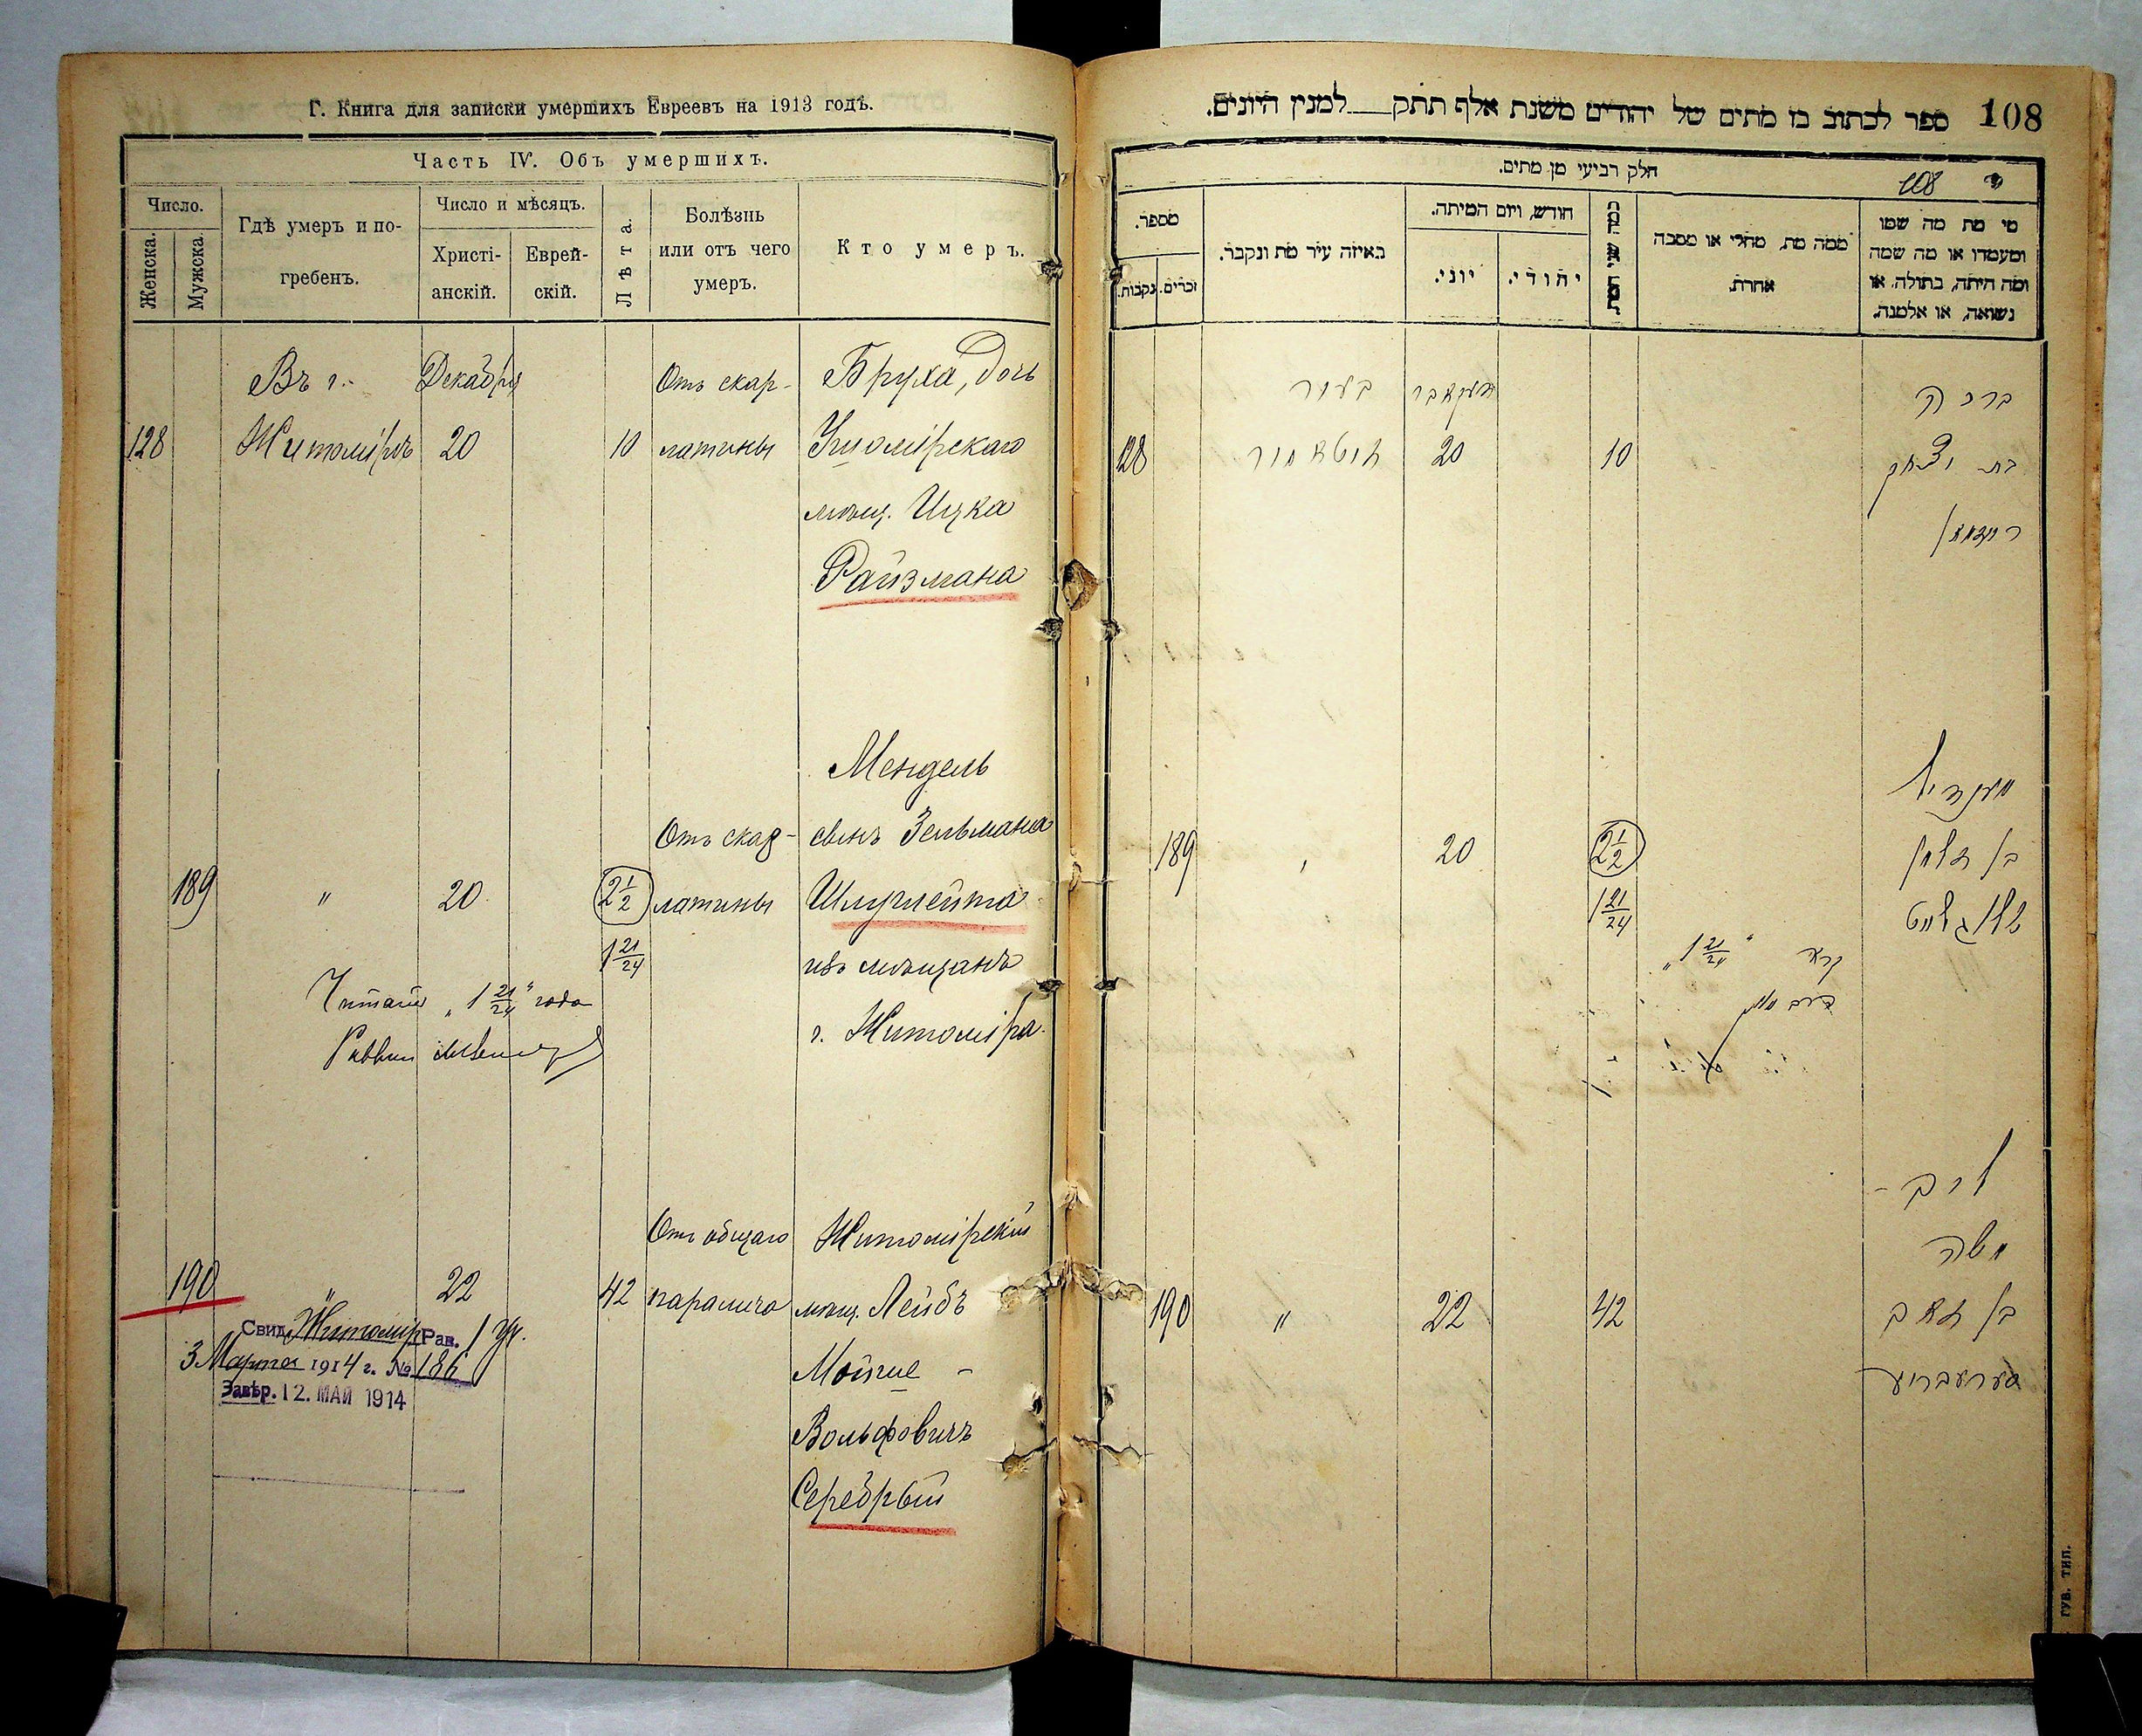 Г. Книга для записки умершихъ Евреевъ на 1913 годъ.
Часть IV. Объ умершихъ.
Число.
Женска.
Мужска.
Гдѣ умеръ и по-
гребенъ.
Число и мѣсяцъ.
Христі-
анскій.
Еврей-
скій.
Лѣта.
Болѣзнь
или отъ чего
умеръ.
Кто умеръ.
Въ г. Декабря Отъ скар- Бруха, дочь
128 Житомірѣ 20 10 латины
мѣщ. Ицка
Райзмана
Мендель
Отъ скар- сынъ Зельмана
189 " 20 2 1/2 латины
1 21/24 изъ мѣщанъ
г. Житоміра
Читать „1 21/24" года
Раввинъ
Отъ общаго Житомірскій
190 " 22 42 паралича мѣщ. Лейбъ
Мойше -
Вольфовичъ
Серебрый
Свид. Житомір Рав.
3 Марта 1914 г. № 186
Завѣр. 12. МАЙ 1914
108 ספר לכתוב בו מתים של יהודים משנת אלף תתק___למנין היונים.
חלק רביעי מן מתים.
108
מספר.
זכרים.
נקבות.
באיזה עיר מת ונקבר.
חודש, ויום המיתה.
יוני.
יהודי.
כמה שני המת.
ממה מת, מחלי או מסבה
אחרת.
מי מת מה שמו
ומעמדו או מה שמה
ומה היתה, בתולה, או
נשואה, או אלמנה.
ברכה
דעקאבר
בעיר
בת יצחק
10
20
זיטאמיר
128
רייזמאן
מענדיל
בן זלמן
2 1/2
20
189
1 21/24
קרא „1 21/24"
ליב
משה
בן זאב
42
22
"
190
סערעבריע
ГУБ. ТИП.